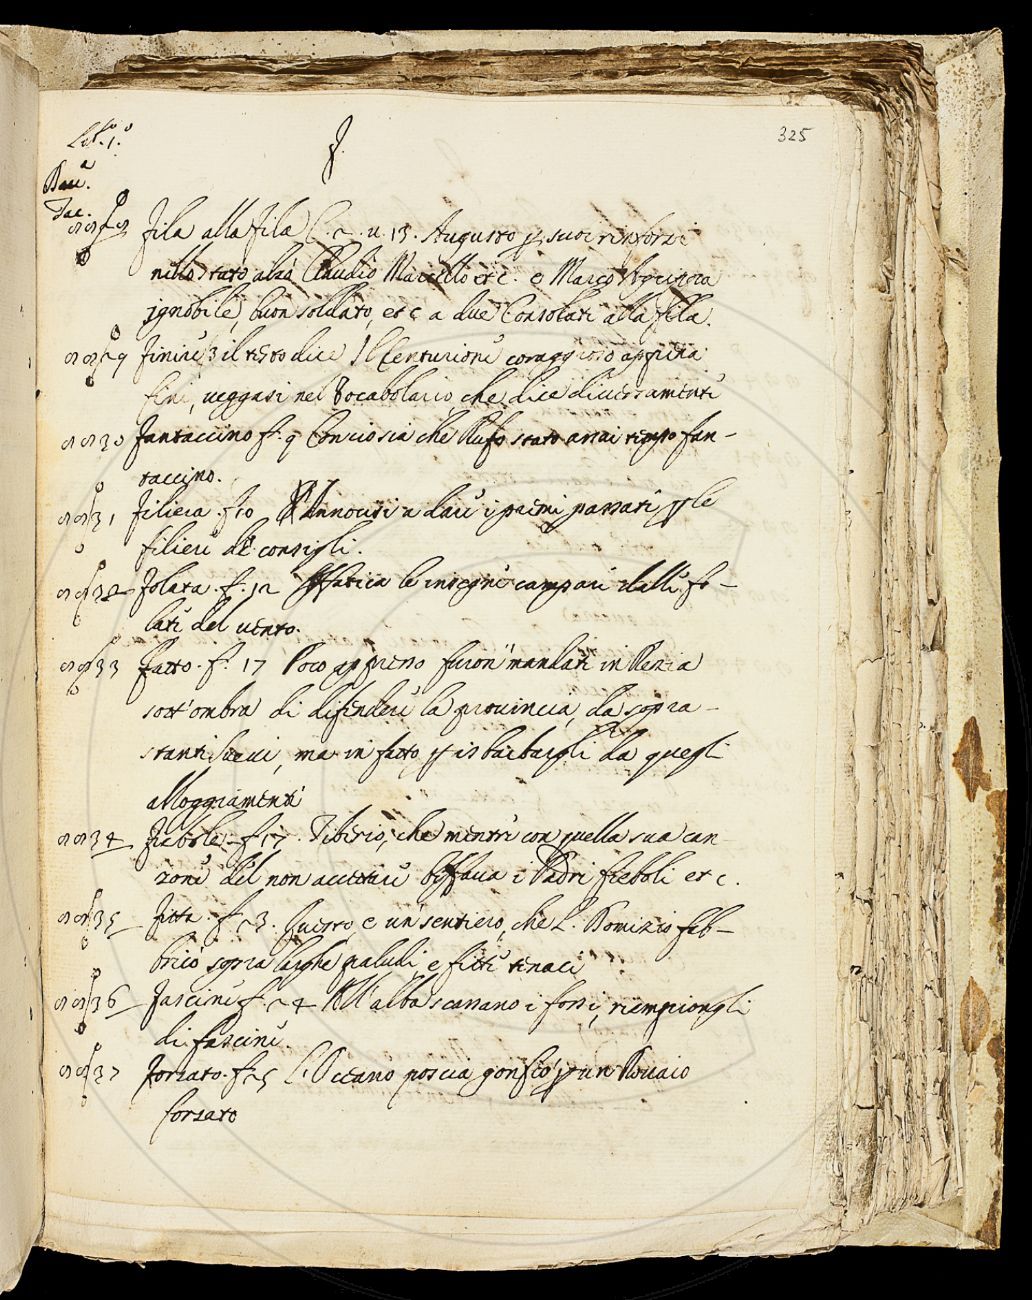 325
F.
Dav.
Tac.
Fila alla fila l. 2. n. 13. Augusto p suoi rinforzi
nello stato alzò Claudio Marcello etc. e Marco Agrippa
ignobile, buon soldato, etc a due Consolati alla fila.
Finire il testo dice Il Centurione coraggioso appena
fini, veggasi nel Vocabolario che dice diversamente
3230 Fantaccino f. 9 Conciosia che Rufo stato assai tempo fan-
taccino.
3231 Filiera f. 10 Annousi a dare i primi passati p le
filiere de consigli.
3232 Folata. f. 12 fatica le insegne campare dalle fo-
late del vento.
3233 Fatto. f. 17 Poco appresso furon mandati in Rezia
sott'ombra di difendere la provincia, da sopra-
stanti Svevi, ma in fatto p isbarbargli da quegli
alloggiamenti
3234 Fiebole. f. 17. Tiberio, che mentre con quella sua can
zone del non accettare beffava i Padri fieboli etc.
3235 Fitta. f. 23. Questo, è un sentiero, che L. Domizio fab-
bricò sopra larghe paludi, e fitte tenaci
3236 Fascine f. 24 All'alba scassano i fossi, riempiongli
di fascine.
3237 Forzato. f. 25 L'Oceano poscia gonfiò p un Rovaio
forzato